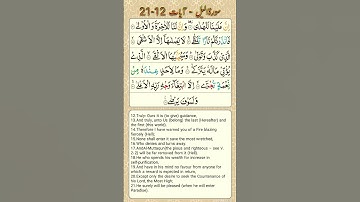 سورة الليل - آيات 12-21
إِنَّ عَلَيْنَا لَلْهُدَىٰ وَإِنَّ لَنَا لَلْآخِرَةَ وَالْأُولَىٰ
فَأَنذَرْتُكُمْ نَارًا تَلَظَّىٰ لَا يَصْلَاهَا إِلَّا الْأَشْقَى
الَّذِي كَذَّبَ وَتَوَلَّىٰ وَسَيُجَنَّبُهَا الْأَتْقَى الَّذِي
يُؤْتِي مَالَهُ يَتَزَكَّىٰ وَمَا لِأَحَدٍ عِندَهُ مِن
نِّعْمَةٍ تُجْزَىٰ إِلَّا ابْتِغَاءَ وَجْهِ رَبِّهِ الْأَعْلَىٰ
وَلَسَوْفَ يَرْضَىٰ
12.Truly! Ours it is (to give) guidance,
13.And truly, unto Us (belong) the last (Hereafter) and
the first (this world).
14.Therefore I have warned you of a Fire blazing
fiercely (Hell);
15.None shall enter it save the most wretched,
16.Who denies and turns away.
17.And Al-Muttaqun (the pious and righteous - see V.
2: 2) will be far removed from it (Hell).
18.He who spends his wealth for increase in
self-purification,
19.And have in his mind no favour from anyone for
which a reward is expected in return,
20.Except only the desire to seek the Countenance of
his Lord, the Most High;
21.He surely will be pleased (when he will enter
Paradise).